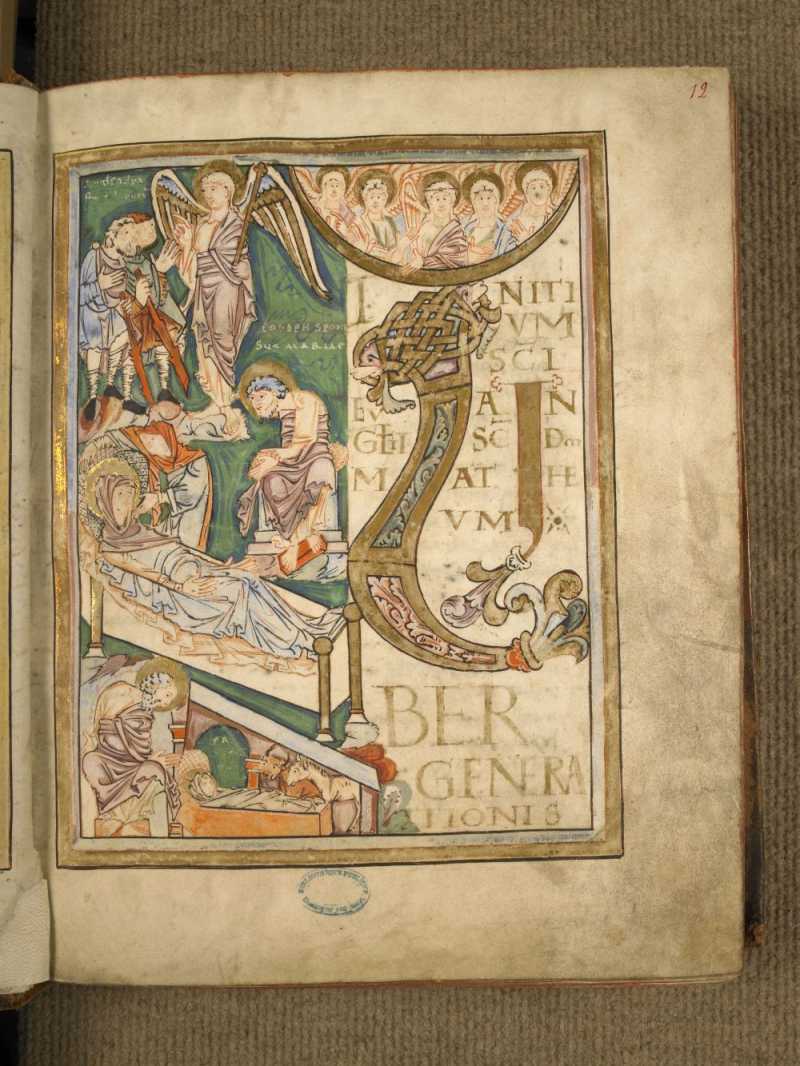 12
IOSEPH SPON
SUS MARIAE
INITI
VM
SCI
EV AN
GELII SC̄DM
MATHE
VM
LIBER
GENERA
TIONIS